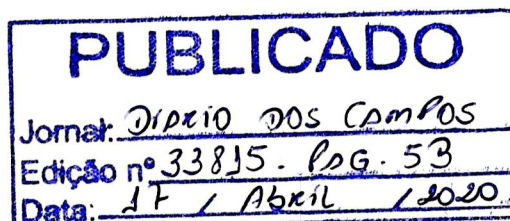 PUBLICADO
Jornal: DIÁRIO DOS CAMPOS
Edição nº 33815. PAG. 5B
Data: 17 / Abril / 2020